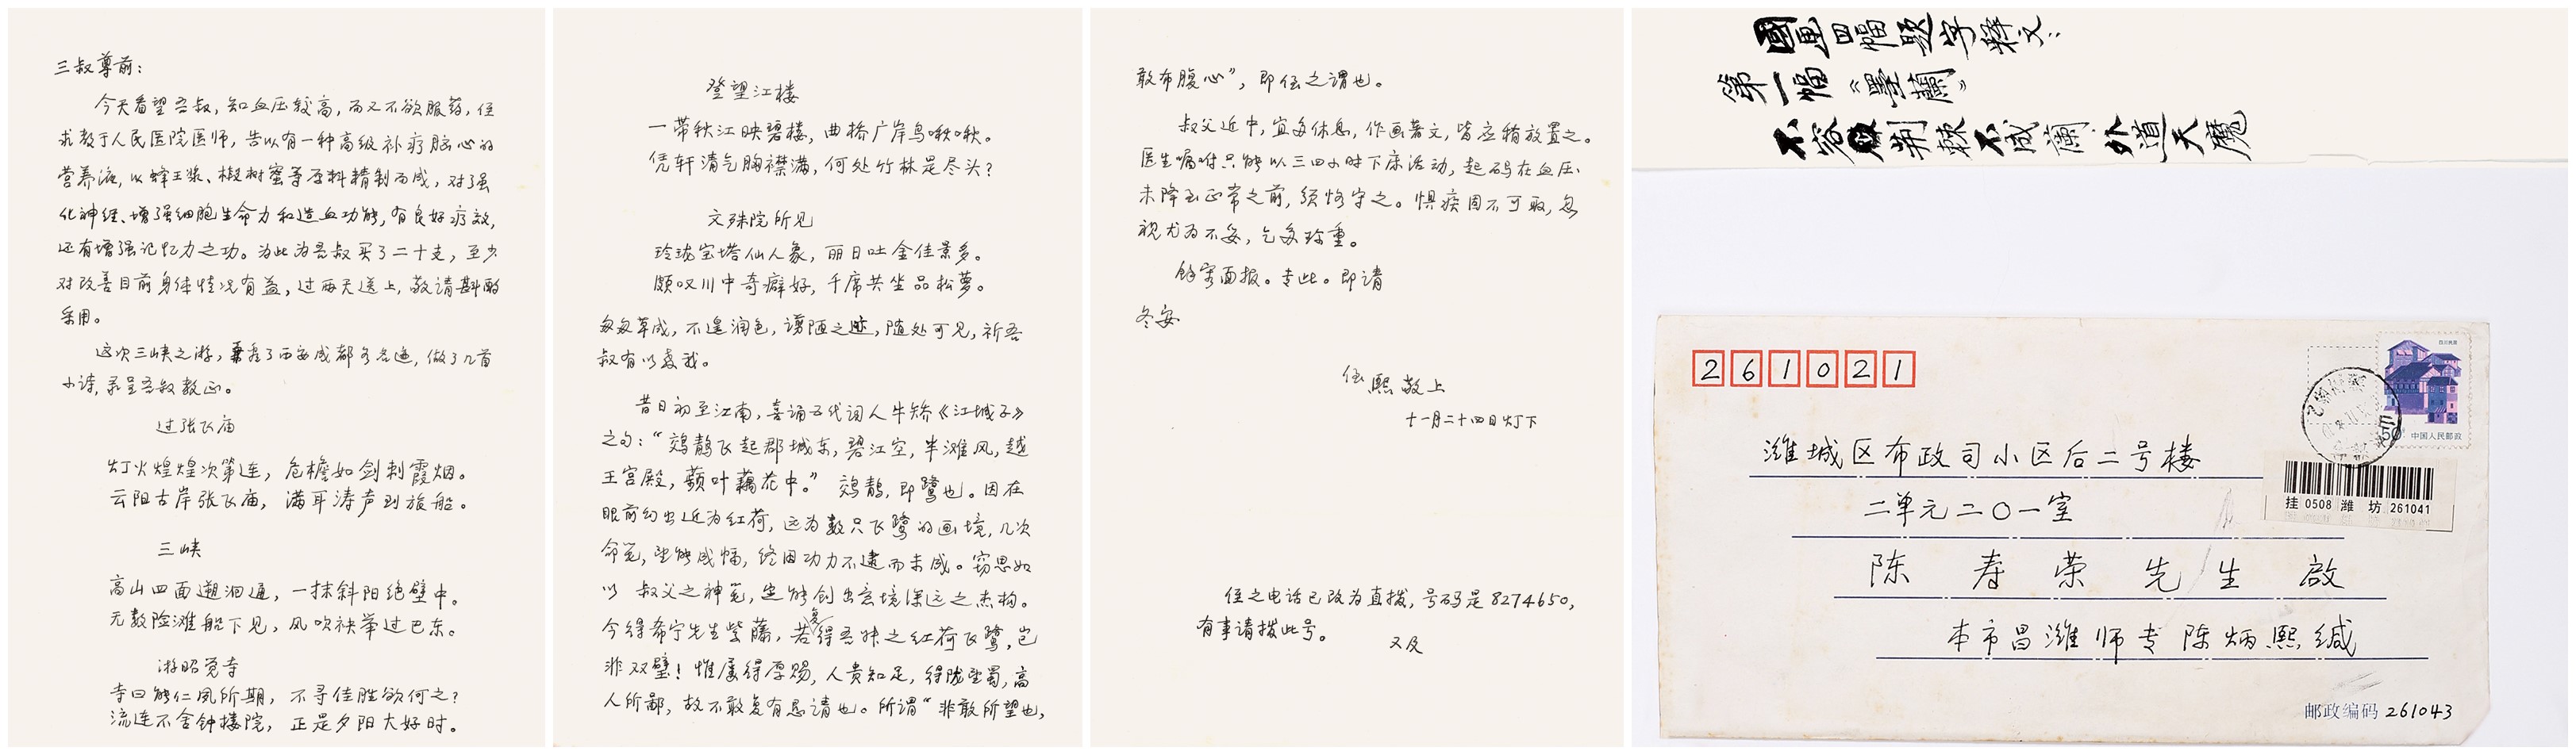 三叔尊前：
今天看望吾叔，知血压较高，而又不欲服药，侄
求教于人民医院医师，告以有一种高级补疗脑心的
营养液，以蜂王浆、椴树蜜等原料精制而成，对强
化神经、增强细胞生命力和造血功能，有良好疗效，
还有增强记忆力之功。为此为吾叔买了二十支，至少
对改善目前身体情况有益，过两天送上，敬请斟酌
采用。
这次三峡之游，兼看了西安成都各名迹，做了几首
小诗，录呈吾叔教正。
过张飞庙
灯火煌煌次第连，危檐如剑刺霞烟。
云阳古岸张飞庙，满耳涛声到旅船。
三峡
高山四面溯洄通，一抹斜阳绝壁中。
无数险滩船下见，风吹袂举过巴东。
游昭觉寺
寺曰能仁夙所期，不寻佳胜欲何之？
流连不舍钟楼院，正是夕阳大好时。
登望江楼
一带秋江映碧楼，曲桥广岸鸟啾啾。
凭轩清气胸襟满，何处竹林是尽头？
文殊院所见
玲珑宝塔仙人象，丽日吐金佳景多。
颇叹川中奇癖好，千席共坐品松萝。
匆匆草成，不遑润色，谫陋之迹，随处可见，祈吾
叔有以教我。
昔日初至江南，喜诵五代词人牛矫《江城子》
之句：“䴔鶄飞起郡城东，碧江空，半滩风，越
王宫殿，蘋叶藕花中。” 䴔鶄，即鹭也。因在
眼前幻出近为红荷，远为数只飞鹭的画境，几次
命笔，望能成幅，终因功力不逮而未成。窃思如
以 叔父之神笔，定能创出意境深远之杰构。
今得希宁先生紫藤，若复得吾叔之红荷飞鹭，岂
非双璧！惟屡得厚赐，人贵知足，得陇望蜀，高
人所鄙，故不敢复有恳请也。所谓“非敢所望也，
敢布腹心”，即侄之谓也。
叔父近中，宜多休息，作画著文，皆应稍放置之。
医生嘱咐只能以三四小时下床活动，起码在血压
未降至正常之前，须恪守之。惧疾固不可取，忽
视尤为不妥，乞多珍重。
馀容面报。专此。即请
冬安
侄熙敬上
十一月二十四日灯下
侄之电话已改为直拨，号码是8274650，
有事请拨此号。
又及
國画四幅题字释文：
第一幅《墨蘭》
不容荆棘不成蘭 外道天魔
261021
潍城区布政司小区后二号楼
二单元二〇一室
陈寿荣先生啟
本市昌潍师专陈炳熙缄
50 中国人民邮政
挂 0508 潍坊 261041
邮政编码 261043